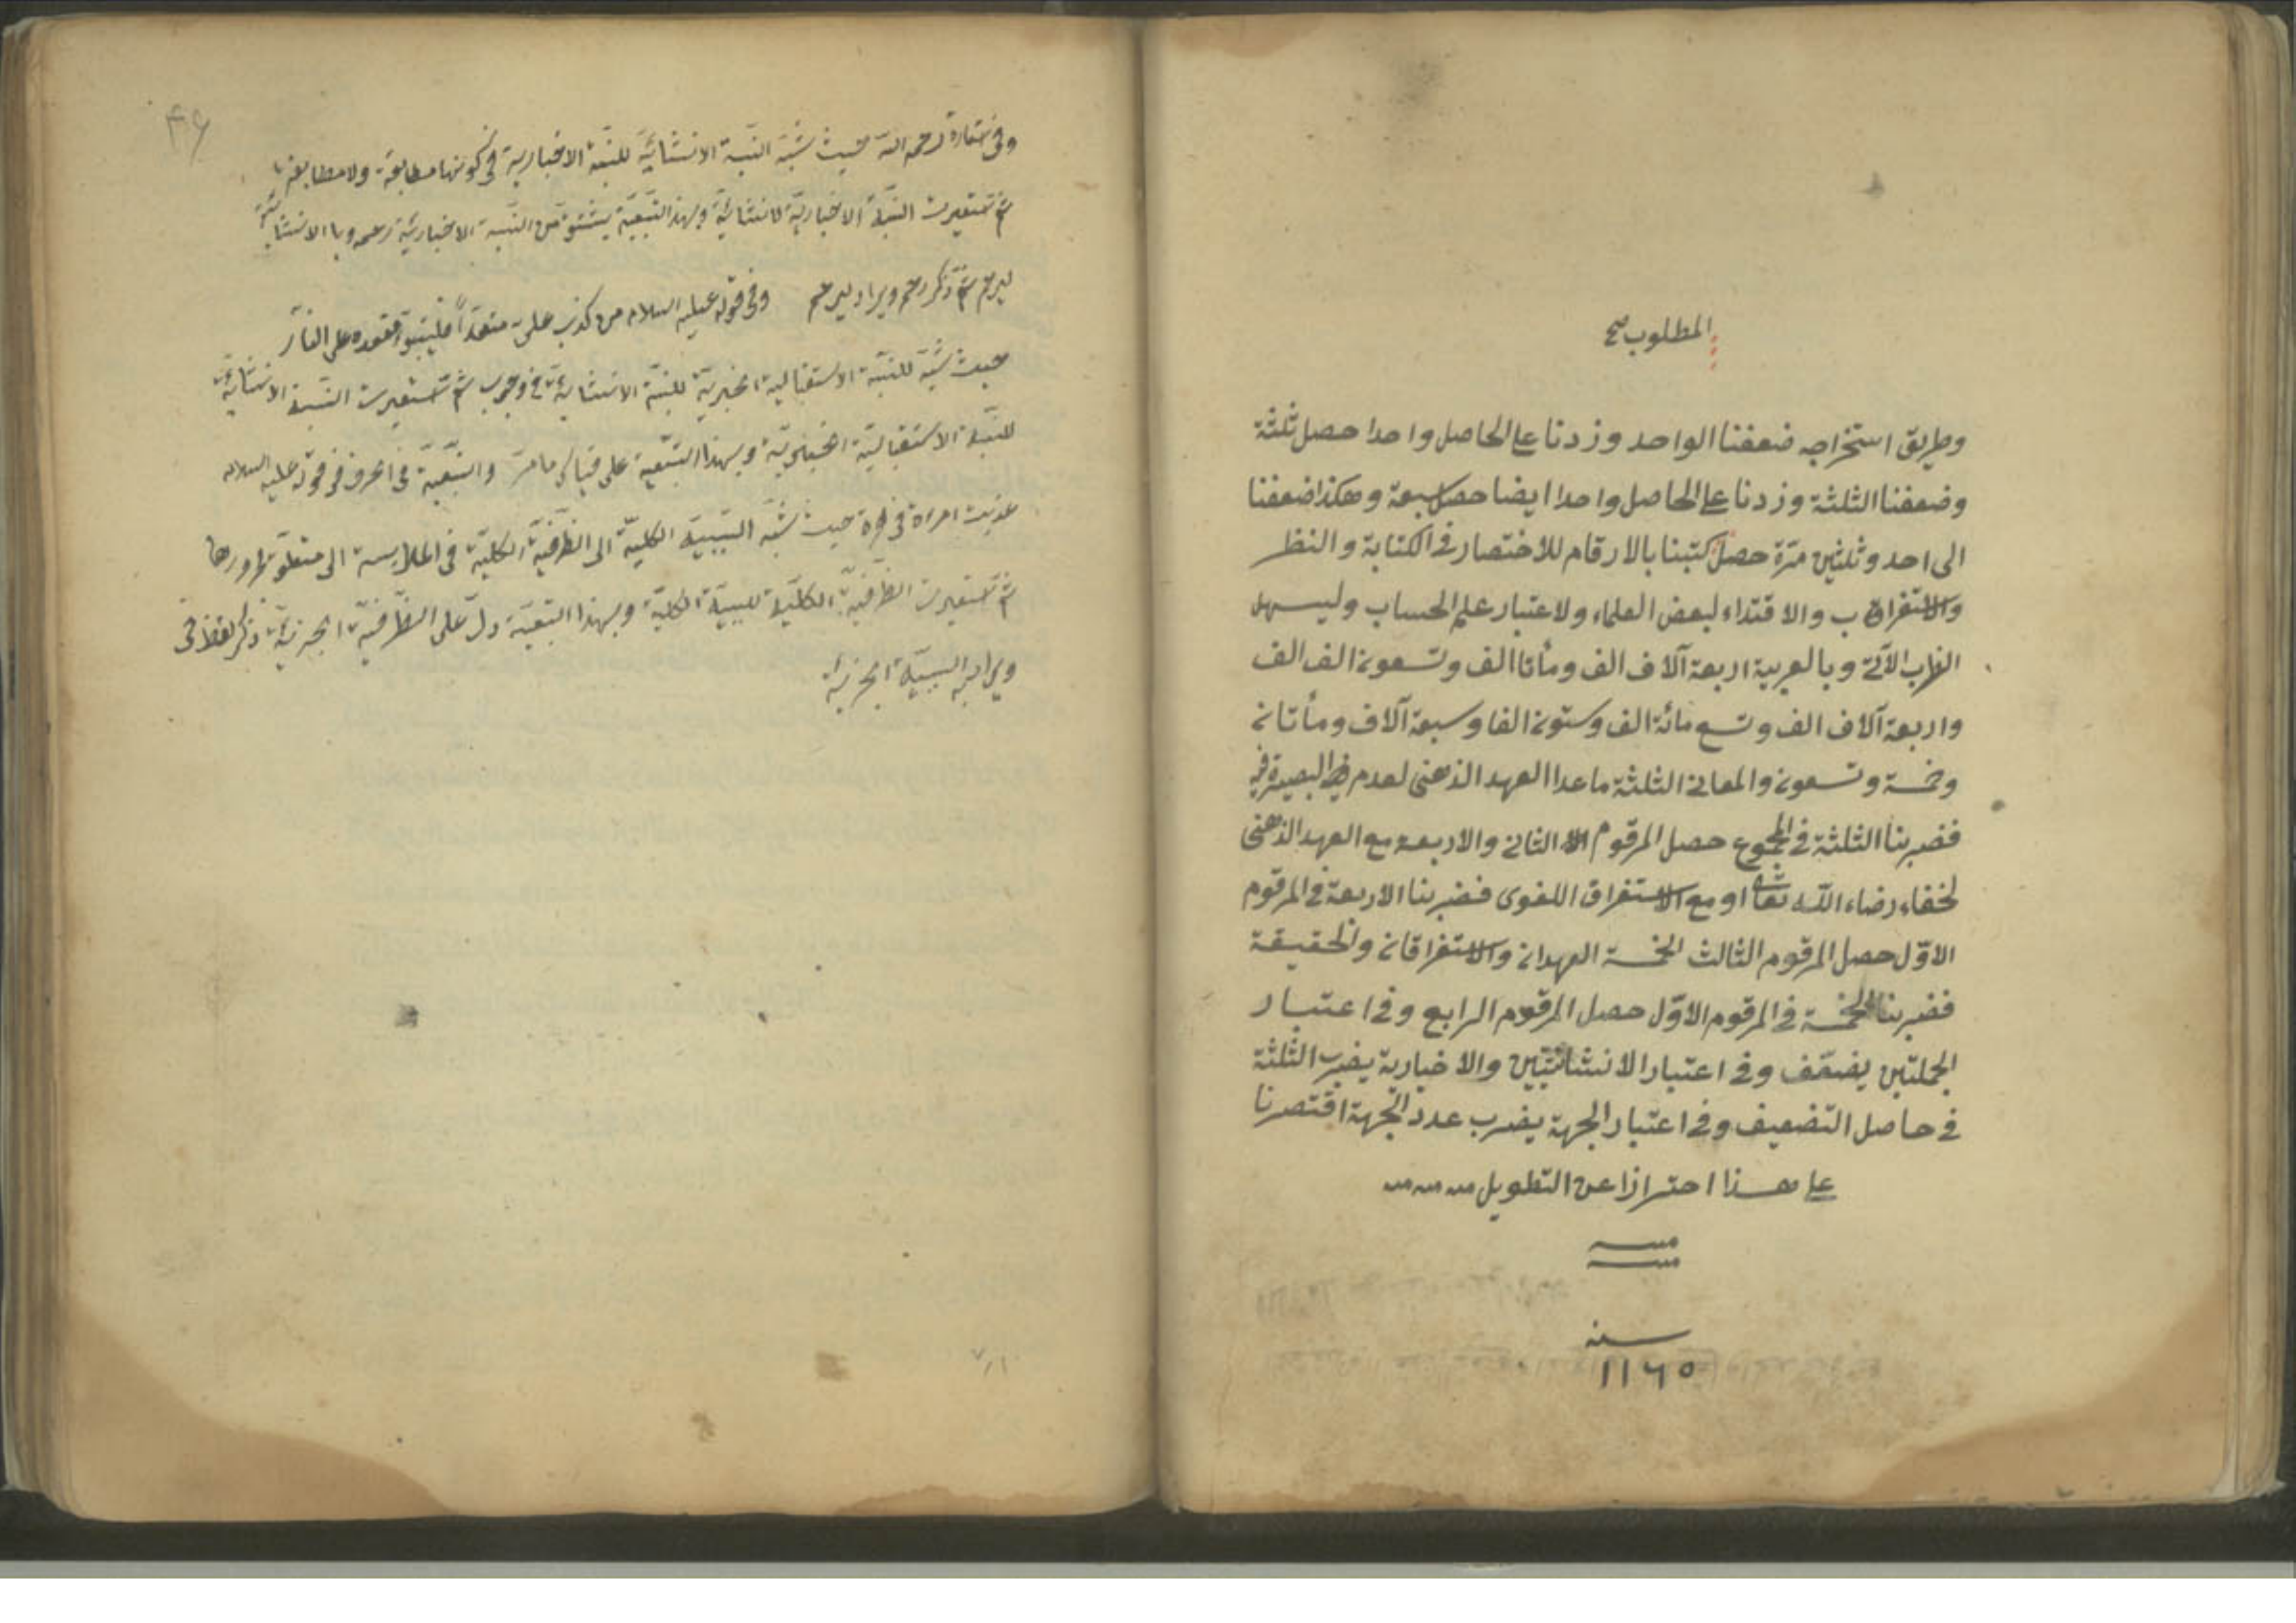 المطلوب صح
وطريق استخراجه ضعفنا الواحد وزدنا على الحاصل واحدا حصل ثلثة
وضعفنا الثلثة وزدنا على الحاصل واحدا ايضا حصل سبعة وهكذا ضعفنا
الى احد وثلثين مرة حصل كتبنا بالارقام للاختصار في الكتابة والنظر
والاستغراق ب والاقتداء لبعض العلماء ولاعتبار علم الحساب وليسهل
الضرب الآتى وبالعربية اربعة آلاف الف ومأتا الف وتسعون الف الف
واربعة آلاف الف وتسع مائة الف وستون الفا وسبعة آلاف ومأتان
وخمسة وتسعون والمعانى الثلثة ماعدا العهد الذهنى لعدم البصيرة فيه
فضربنا الثلثة في المجموع حصل المرقوم الثانى والاربعة مع العهد الذهنى
لخفاء رضاء الله تعالى او مع الاستغراق اللغوى فضربنا الاربعة في المرقوم
الاول حصل المرقوم الثالث الخمسة العهدان والاستغراقان والحقيقة
فضربنا الخمسة في المرقوم الاول حصل المرقوم الرابع وفي اعتبار
الجملتين يضعف وفي اعتبار الانشائيتين والاخبارية يضرب الثلثة
في حاصل التضعيف وفي اعتبار الجهة يضرب عدد الجهة اقتصرنا
على هذا احترازا عن التطويل
سنه
١١٦٥
٤٦
رحمه الله حيث شبه النسبة الانشائية للنسبة الاخبارية في كونها مطابقة ولا مطابقة
ثم استعيرت النسبة الاخبارية لانشائية وبهذا التبعية يشتق من النسبة الاخبارية رحم وبالانشائية
ليرحم ثم ذكر رحم ويراد ليرحم وفي قوله عليه السلام من كذب على متعمدا فليتبوأ مقعده على النار
حيث شبه للنسبة الاستقبالية الخبرية للنسبة الانشائية في وجوب ثم استعيرت النسبة الانشائية
للنسبة الاستقبالية الخبرية وبهذا التبعية على قياس ما مر والتبعية في الحروف في قوله عليه السلام
عذبت امراة في هرة حيث شبه السببية الكلية الى الظرفية الكلية في الملابسة الى متعلق
ثم استعيرت الظرفية الكلية للسببية الكلية وبهذا التبعية دل على الظرفية الجزئية ذكر لفظ في
ويراد به السببية الجزئية